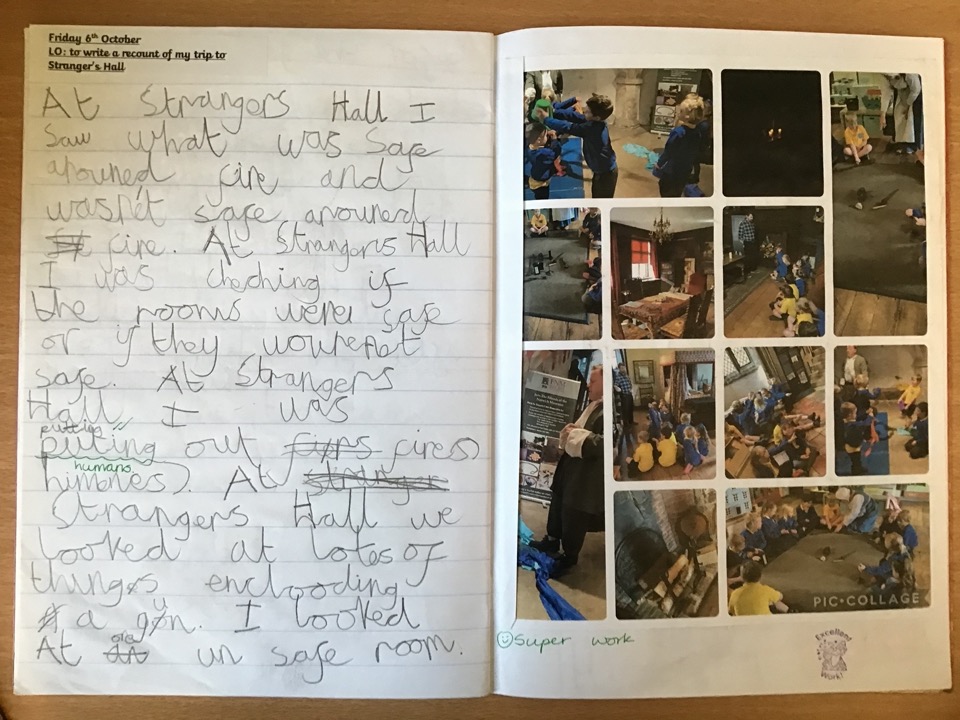 Friday 6th October
LO: to write a recount of my trip to
Stranger's Hall
At Strangers Hall I
Saw what was Safe
arouned fire and
wasn't safe arouned
fire. At Strangers Hall
I was checking if
the rooms were safe
or if they wouhernt
safe. At Strangers
Hall I was
putting
puting out fures fires)
humans
himones). At strange
Strangers Hall we
looked at lotes of
things enclooding
a gun. I looked
At an un safe room.
Super work
Excellent
Work!
PIC•COLLAGE